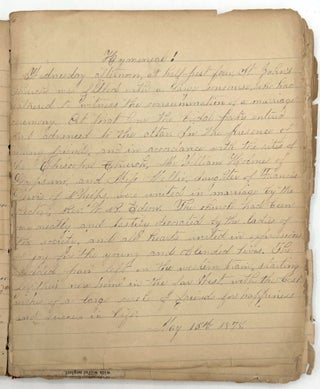 Hymeneal!
Wednesday afternoon, at half past four, St. John's
was filled with a large concourse, who had
gathered to witness the consummation of a marriage
ceremony. At that hour the bridal party entered
and advanced to the altar. In the presence of
many friends, and in accordance with the rites of
the Episcopal Church, Mr. William
and Miss Nellie, daughter of Francis
of Phelps, were united in marriage by the
rector, Rev. The church had been
neatly and tastily decorated by the ladies of
the society, and all hearts united in expressions
of joy for the young and
pair left on the western train, starting
for their new home in the far West, with the best
wishes of a large circle of friends for happiness
and success in life.
May 15th 1878